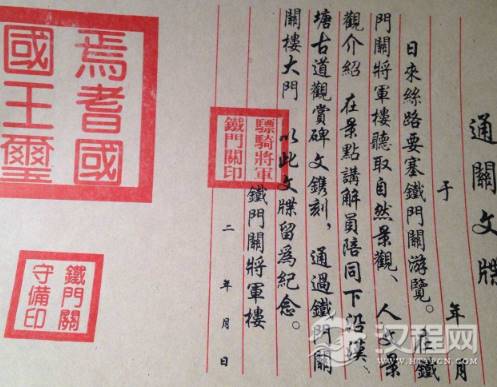 通關文牒
于 年 月
日來絲路要塞鐵門關游覽。在鐵
門關將軍樓聽取自然景觀、人文景
觀介紹 在景點講解員陪同下沿漢、
塘古道觀賞碑文鐫刻，通過鐵門關
關樓大門 以此文牒留爲紀念。
鐵門關將軍樓
二 年 月 日
驃騎將軍
鐵門關印
焉耆國
國王璽
鐵門關
守備印
汉程网
HTTPCN.COM